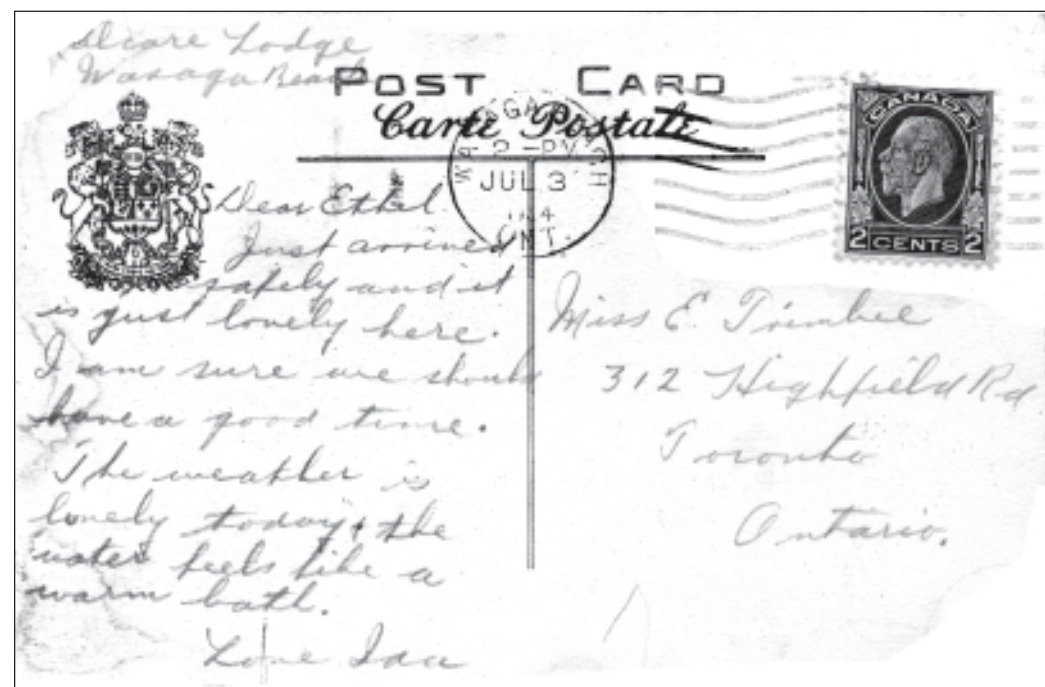 Lodge
Wasaga Beach
POST CARD
Carte Postale
WASAGA BEACH
2 - PM
JUL 3
ONT.
CANADA
2 CENTS 2
Dear Ethel
Just arrived
safely and it
is just lovely here.
I am sure we should
have a good time.
The weather is
lovely today & the
water feels like a
warm bath.
Love Ida
Miss E. Trimbee
312 Highfield Rd
Toronto
Ontario.